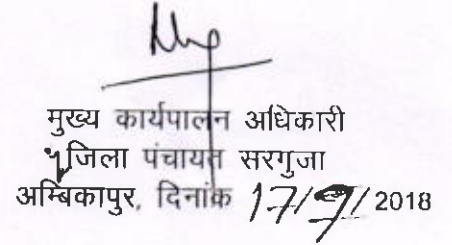 मुख्य कार्यपालन अधिकारी
जिला पंचायत सरगुजा
अम्बिकापुर, दिनांक 17/9/2018